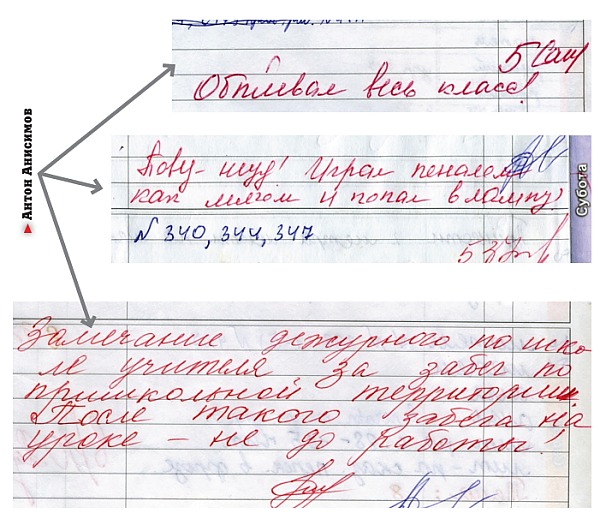 Антон Анисимов
5 
Обплевал весь класс!
Пову - неуд! Играл пеналом
как мячом и попал в лампу!
Суббота
№ 340, 344, 347
53
Замечание дежурного по шко
ле учителя за забег по
пришкольной территории
После такого забега на
уроке - не до работы!